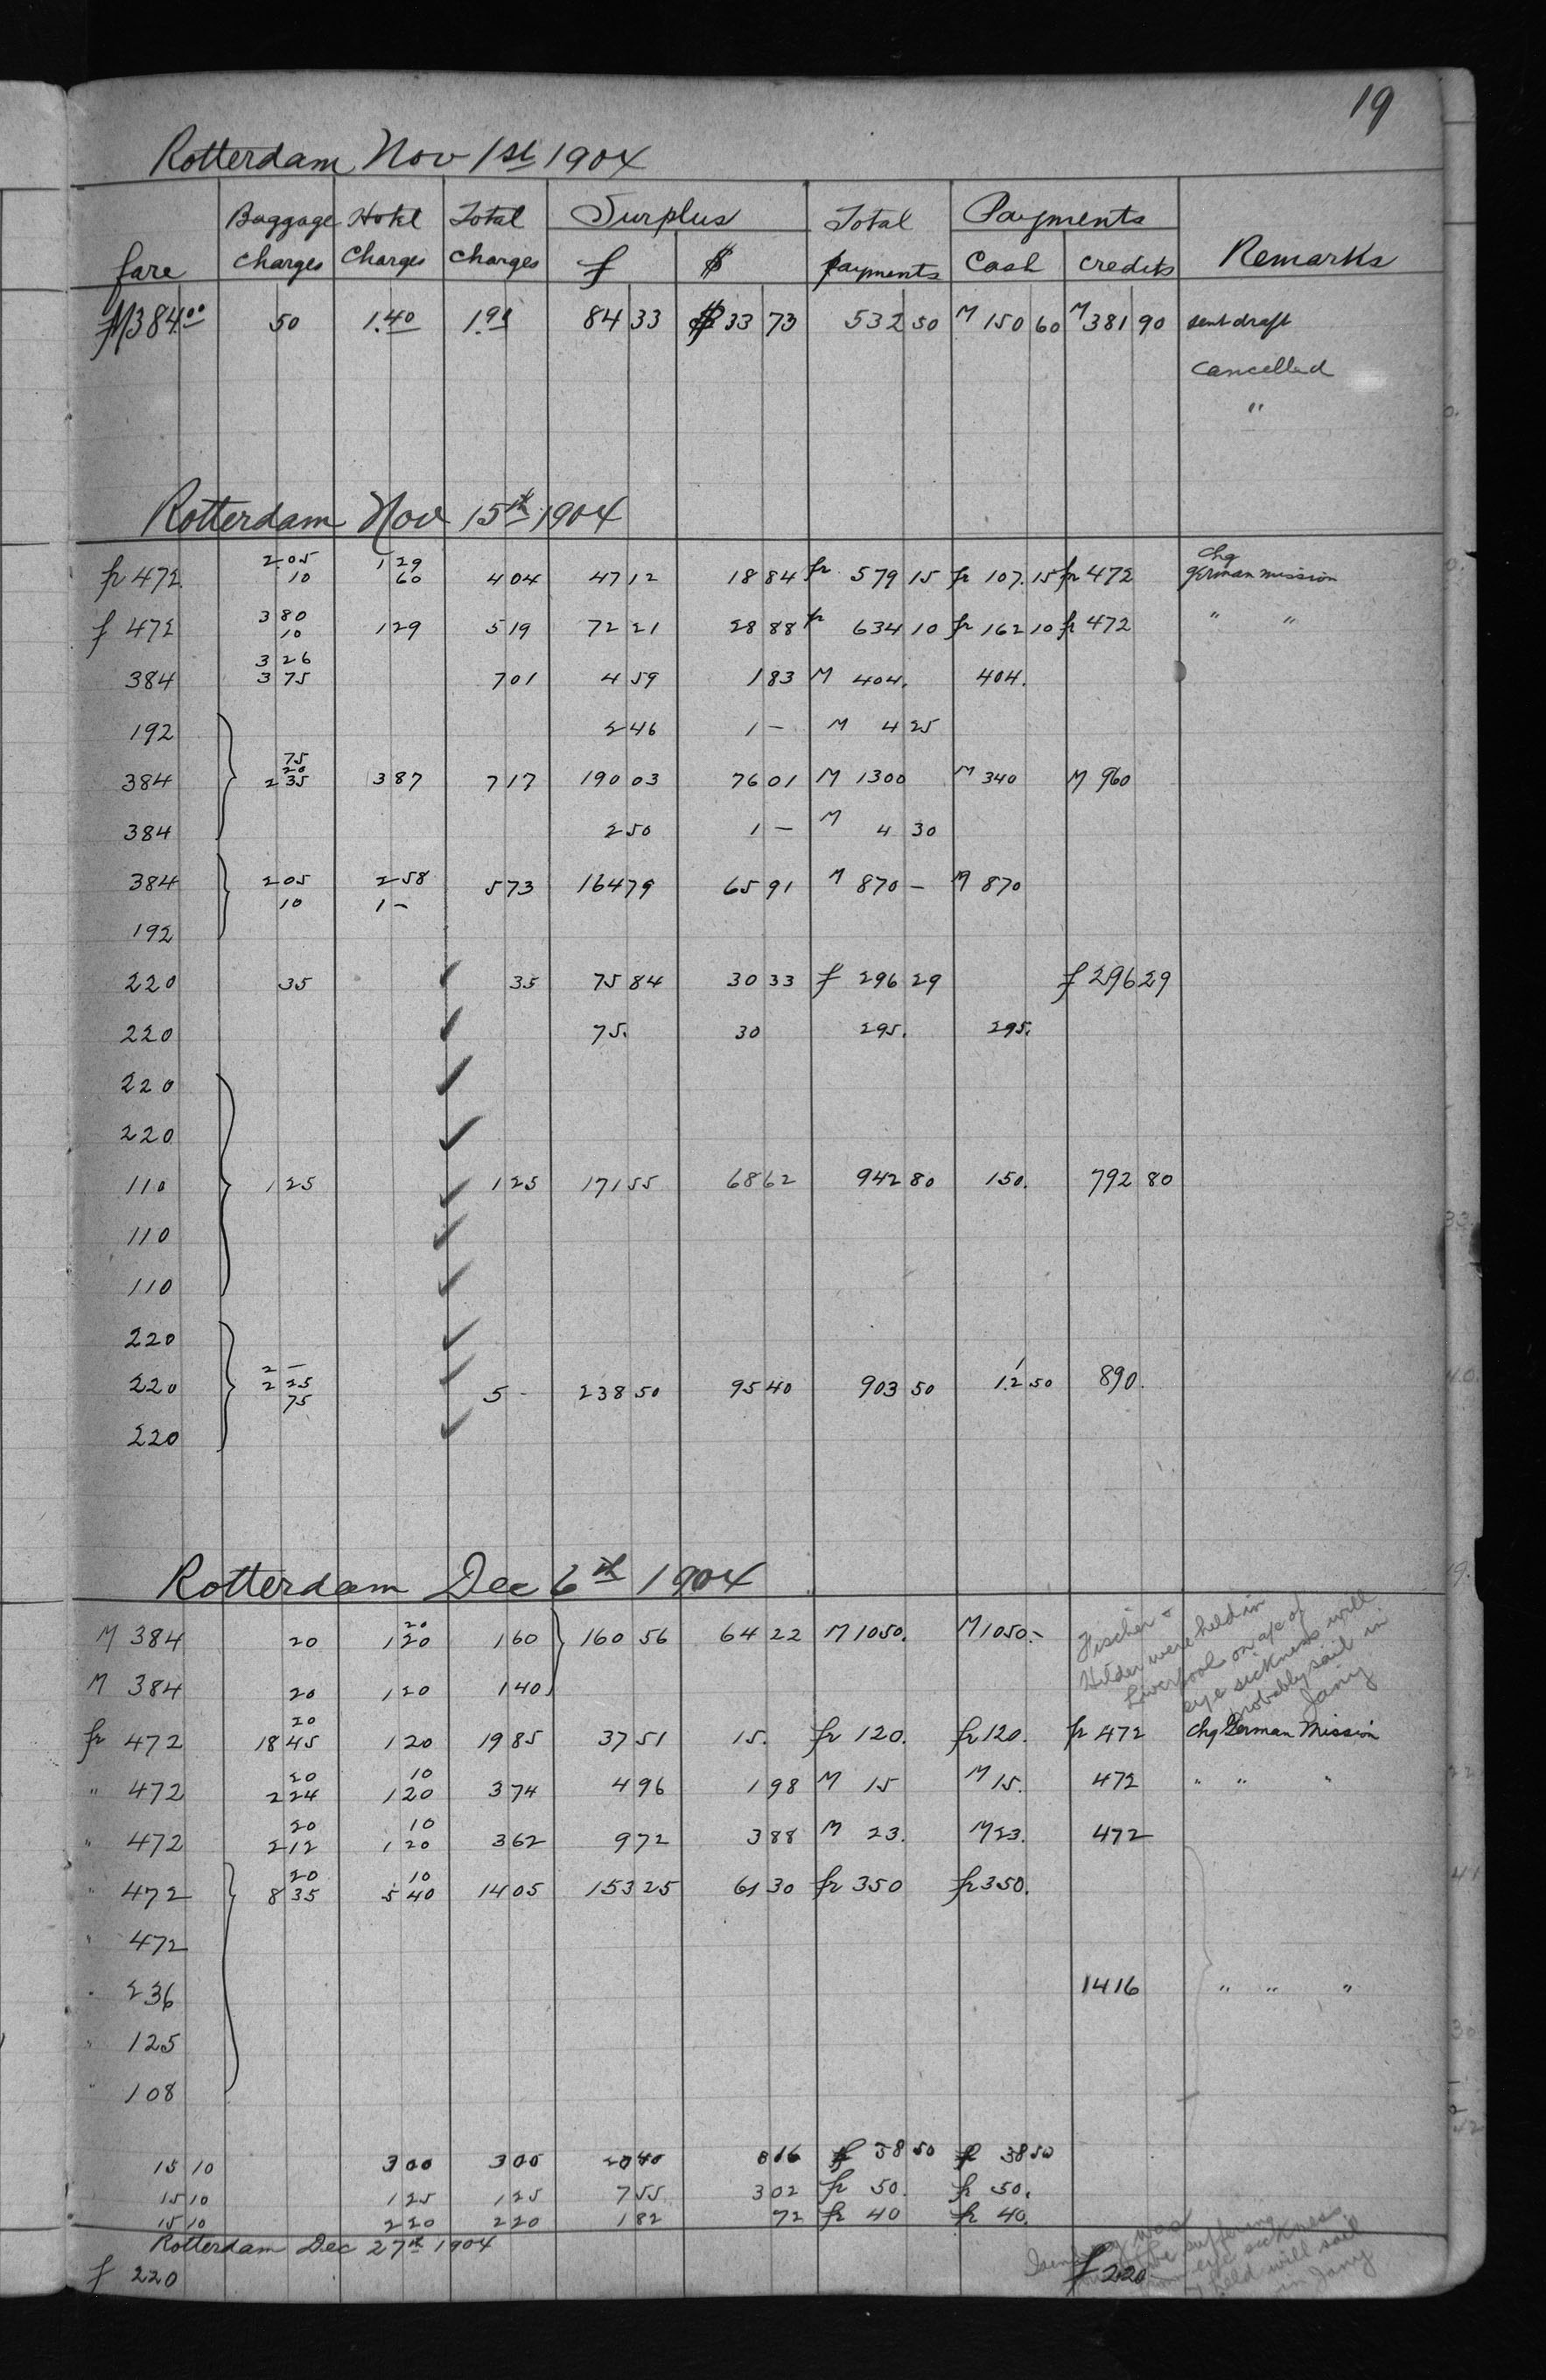 19
Rotterdam Nov 1st 1904
fare Baggage Charges Hotel Charges Total Charges Surplus f $ Total payments Payments Cash Credits Remarks
M384.00 50 1.40 1.90 84 33 $33 73 532 50 M 150 60 M 381 90 sent draft
Cancelled
"
Rotterdam Nov 15th 1904
2.05 1 29 Chg
fr 472 10 60 4 04 47 12 18 84 fr 579 15 fr 107.15 fr 472 german mission
3 80
f 472 10 1 29 5 19 72 21 28 88 fr 634 10 fr 162 10 fr 472 " "
3 26
384 3 75 7 01 4 59 1 83 M 404. 404.
192 2 46 1 — M 4 25
75
20
384 2 35 3 87 7 17 190 03 76 01 M 1300 M 340 M 960
384 2 50 1 — M 4 30
384 2 05 2 58 5 73 164 79 65 91 M 870 — M 870
10 1 —
192
220 35 ✓ 35 75 84 30 33 f 296 29 f 296 29
220 ✓ 75. 30 295. 295.
220 ✓
220 ✓
110 1 25 ✓ 1 25 171 55 68 62 942 80 150. 792 80
110 ✓
110 ✓
220 ✓
2 —
220 2 25 ✓ 5 - 238 50 95 40 903 50 12 50 890.
75
220 ✓
Rotterdam Dec 6th 1904
20
M 384 20 1 20 1 60 160 56 64 22 M 1050. M 1050.-
Fischer &
Hilder were held in
Liverpool on a/c of
eye sickness will
probably sail in
Jany
M 384 20 1 20 1 40
20
fr 472 18 45 1 20 19 85 37 51 15. fr 120. fr 120. fr 472 Chg German Mission
20 10
" 472 2 24 1 20 3 74 4 96 1 98 M 15 M 15. 472 " " "
20 10
" 472 2 12 1 20 3 62 9 72 3 88 M 23. M 23. 472
20 10
" 472 8 35 5 40 14 05 153 25 61 30 fr 350 fr 350.
" 472
" 236 1416 " " "
" 125
" 108
15 10 3 00 3 00 20 40 8 16 f 38 50 f 38 50
15 10 1 25 1 25 7 55 3 02 fr 50. fr 50.
15 10 2 20 2 20 1 82 72 fr 40 fr 40.
Rotterdam Dec 27th 1904
f 220 f 220
was
be suffering
from eye sickness
held will sail
in Jany